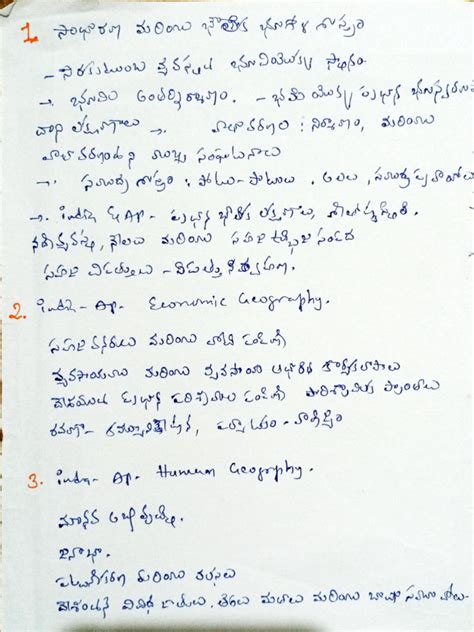 1. సాధారణ మరియు భౌతిక భూగోళ శాస్త్రం
- సౌరకుటుంబ వ్యవస్థలో భూమియొక్క స్థానం
→ భూమి అంతర్నిర్మాణం. - భూమి యొక్క ప్రధాన భూస్వరూప
వాని లక్షణాలు → వాతావరణం : నిర్మాణం, మరియు
వాతావరణం ముఖ్య సంఘటనలు
→ సముద్ర శాస్త్రం : పోటు-పాటులు. అలలు, సముద్ర ప్రవాహాలు
→ India & Ap - ప్రధాన భౌతిక లక్షణాలు, శీతోష్ణస్థితి.
నదీవ్యవస్థ, నేలలు మరియు సహజ ఉద్భిజ సంపద
సహజ విపత్తులు - విపత్తు నిర్వహణ.
2. India - Ap. Economic Geography.
సహజ వనరులు మరియు పంపిణీ
వ్యవసాయం మరియు వ్యవసాయ ఆధారిత కార్యకలాపాలు
ప్రధాన పరిశ్రమలు పంపిణీ పారిశ్రామిక ప్రాంతాలు
రవాణా - పర్యాటకం - వాణిజ్యం
3. India - Ap. Human Geography.
మానవ అభివృద్ధి.
జనాభా.
పట్టణీకరణ మరియు వలసలు
వివిధ జాతులు, తెగలు మతాలు మరియు